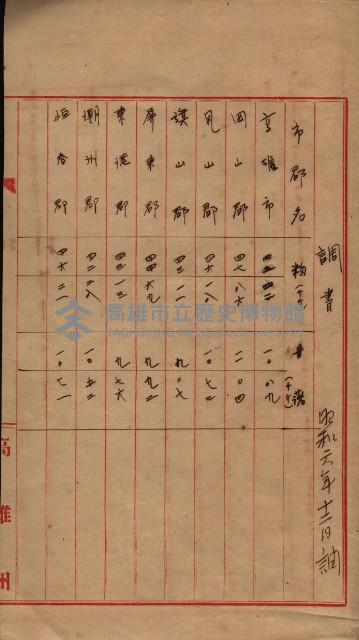 調書
昭和六年十二月調
市郡名
高雄市 一〇八九
岡山郡 四七八六 一一〇四
鳳山郡 四六一八 一〇七二
旗山郡 四三一一 九八七
屏東郡 九九二
東港郡 四四一三 九七六
潮州郡 四二二八 一〇五二
恒春郡 四六二一 一〇七一
高雄州
高雄市立歷史博物館
KAOHSIUNG MUSEUM OF HISTORY